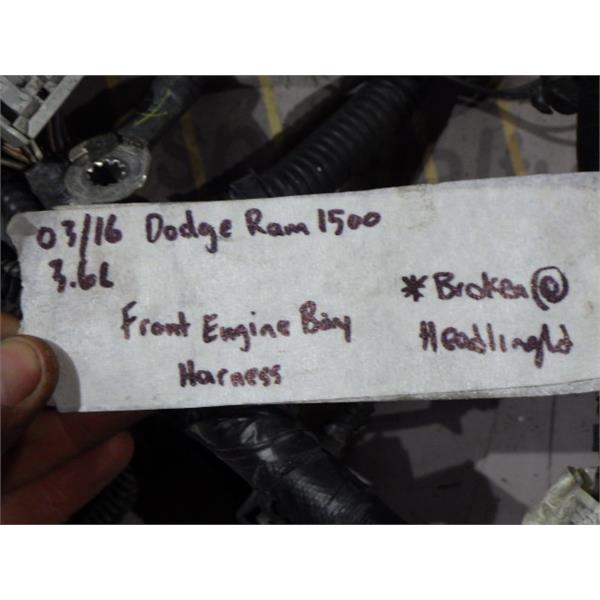 03/16 Dodge Ram 1500
3.6L
Front Engine Bay
Harness
*Broken @
Headlinghd